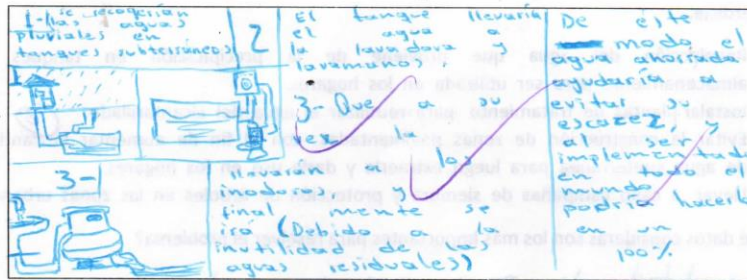 1-(las se recogerían aguas
pluviales en
tanques subterráneos)
1
2
El tanque llevaría
el agua a
la lavadora y
lavamanos
3- Que a su
vez la
llevarán a los
inodoros y
finalmente se
iría (Debido a la
inutilidad de las
aguas residuales)
3-
De este
modo el
agua ahorrada
ayudaría a
evitar su
escazez,
al ser
implementada
en todo el
mundo
podría hacerlo
en
100%